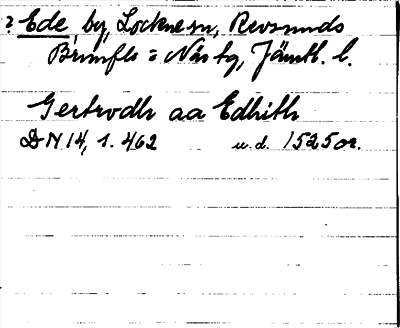 ? Ede, by, Lockne sn, Revsunds
Brunflo = Näs tg, Jämtl. l.
Gertrodh aa Edhith
DN 14, 1. 462 u.d. 1525 or.